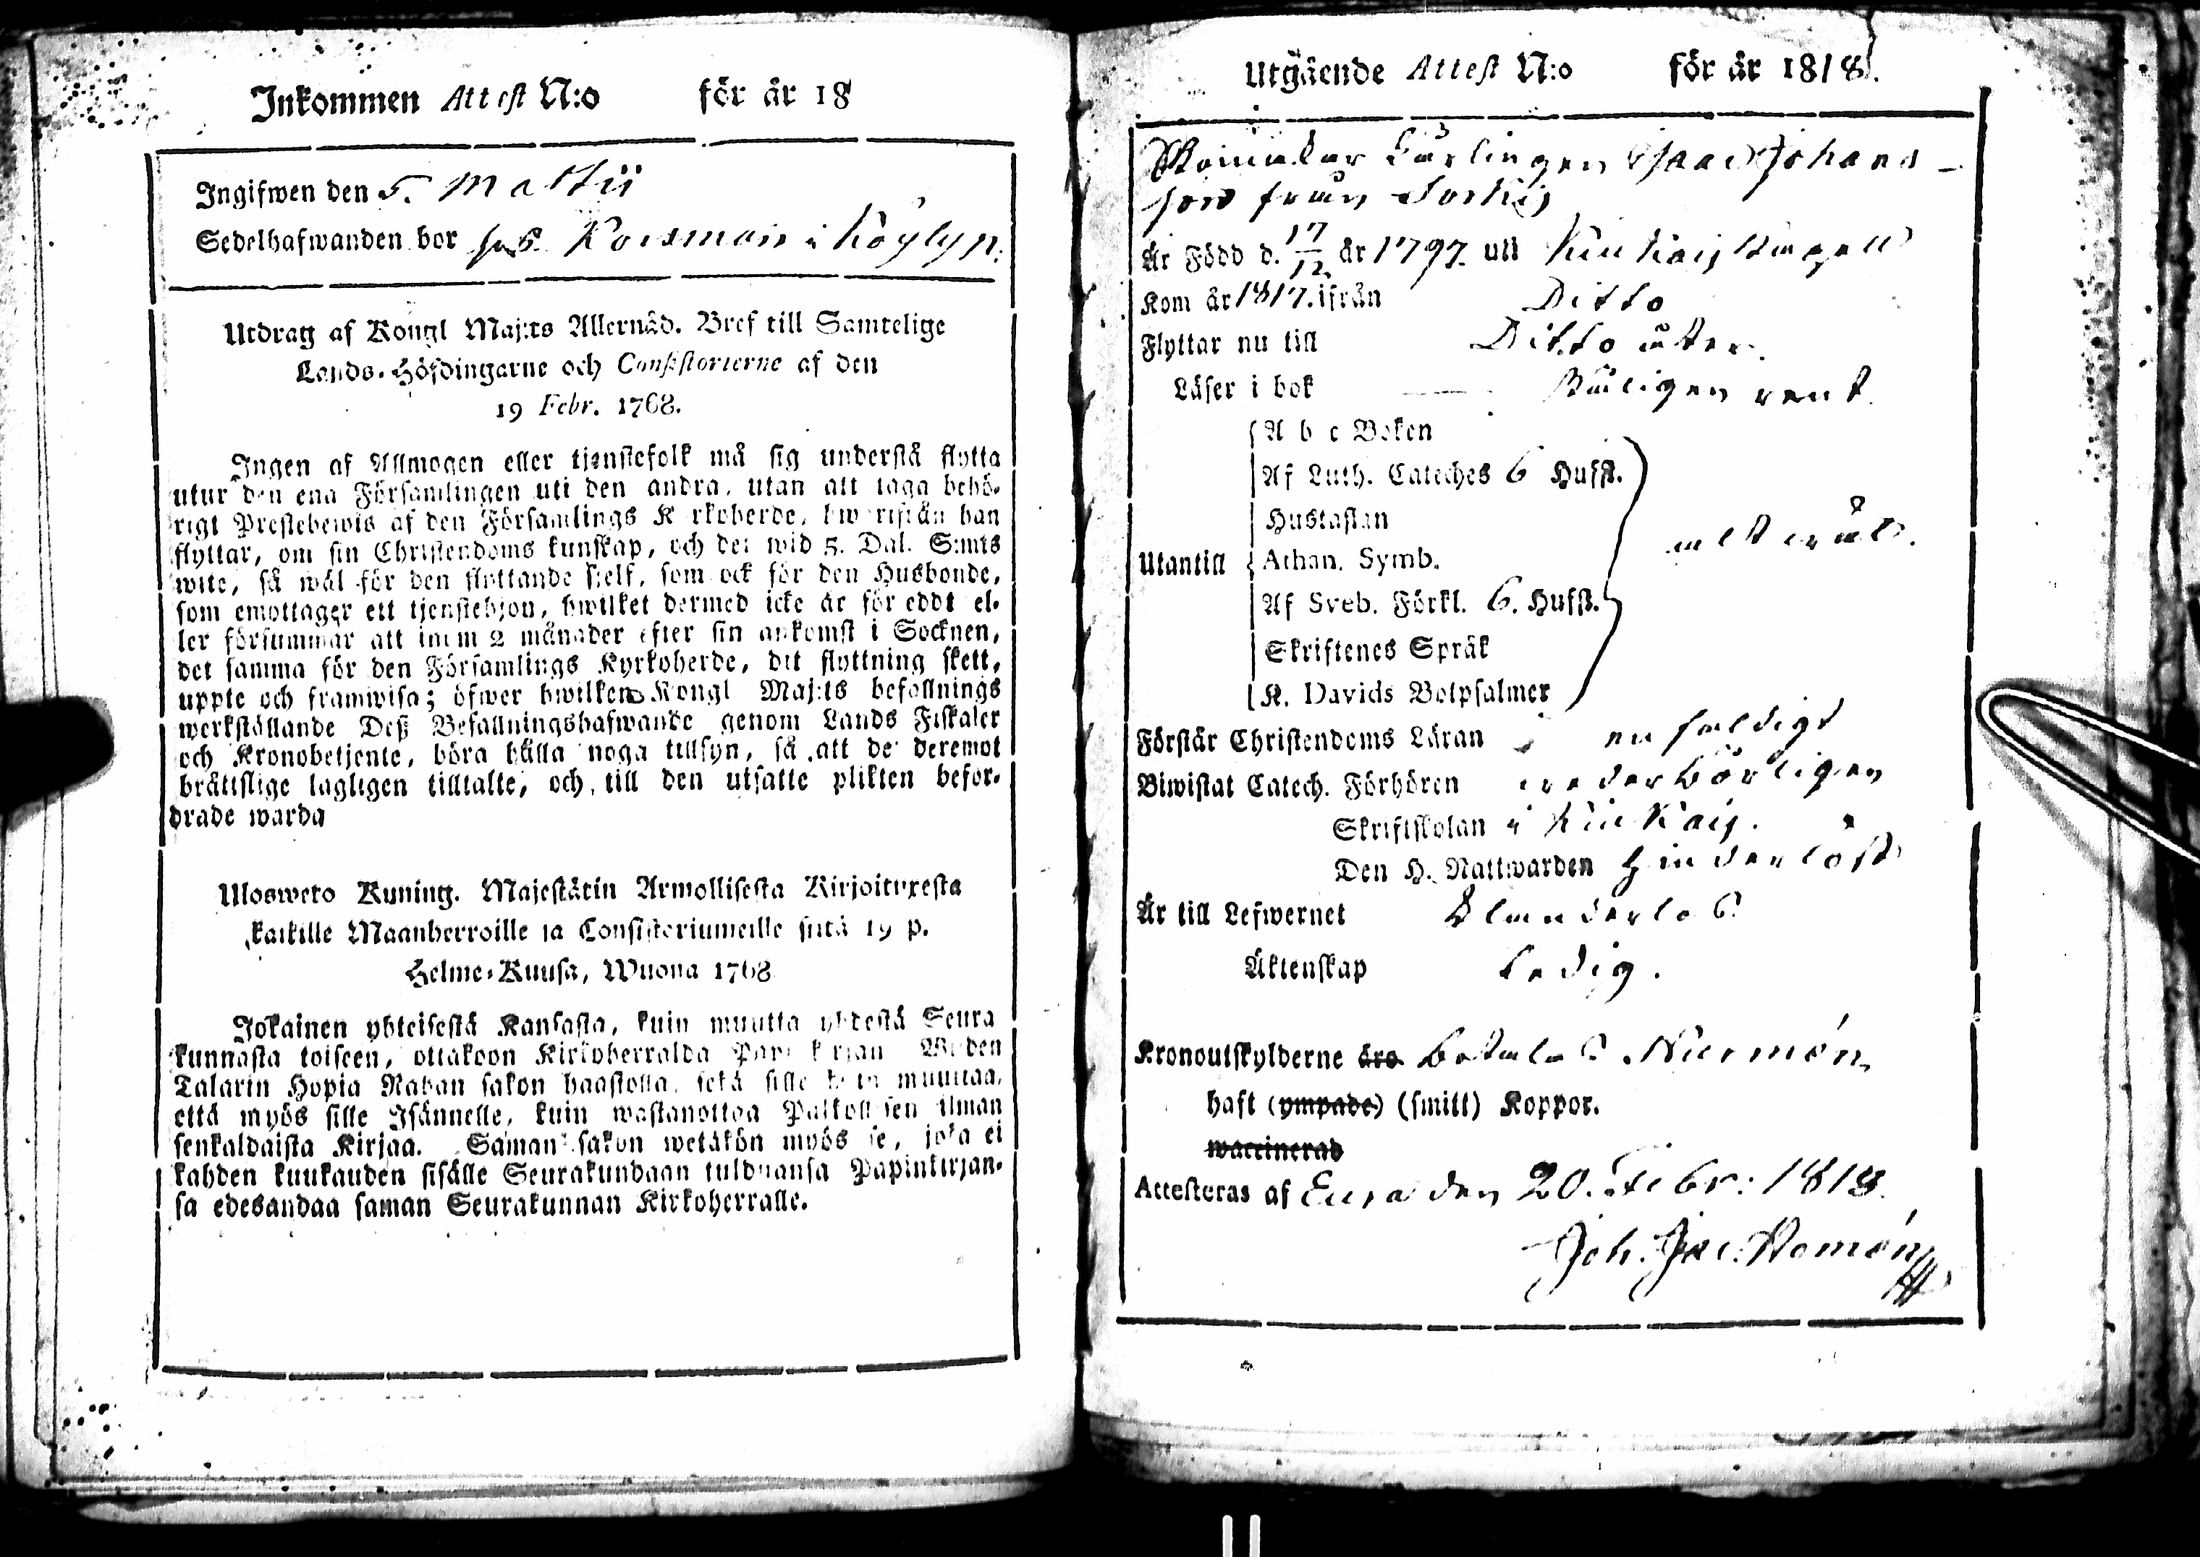 Inkommen Attest N:o för år 18
Ingifwen den 5. Martii
Sedelhafwanden bor hos Korsman i Köyly
Utdrag af Kongl Maj:ts Allernåd. Bref till Samtelige
Lands-Höfdingarne och Consistorierne af den
19 Febr. 1768.
Ingen af Allmogen eller tjenstefolk må sig understå flytta
utur den ena Församlingen uti den andra, utan att taga behö-
rigt Prestebewis af den Församlings Kyrkoherde, hwarifrån han
flyttar, om sin Christendoms kunskap, och det wid 5. Dal. S:mts
wite, så wäl för den flyttande sjelf, som ock för den Husbonde,
som emottager ett tjenstehjon, hwilket dermed icke är föreddt el-
ler försummar att innm 2 månader efter sin ankomst i Socknen,
det samma för den Församlings Kyrkoherde, dit flyttning skett,
uppte och framwisa; öfwer hwilken Kongl Maj:ts befallnings
werkställande Deß Befallningshafwande genom Lands Fiskaler
och Kronobetjente, böra hålla noga tillsyn, så att de deremot
bråttslige lagligen tilltalte, och till den utsatte plikten befor-
drade warda
Ulosweto Kuning. Majestätin Armollisesta Kirjoituxesta
kaikille Maanherroille ja Consistoriumeille siitä 19 p.
Helme-Kuusa, Wuona 1768
Jokainen yhteisestä Kansasta, kuin muutta yhdestä Seura
kunnasta toiseen, ottakoon Kirkoherralda Papinkirjan Wiiden
Talarin Hopia Rahan sakon haastolla, sekä sille kuin muuttaa,
että myös sille Isännelle, kuin wastanottaa Palkollisen ilman
senkaldaista Kirjaa. Saman sakon wetäkön myös se, joka ei
kahden kuukauden sisälle Seurakundaan tulduansa Papinkirjan-
sa edesandaa saman Seurakunnan Kirkoherralle.
Utgående Attest N:o för år 1818.
Skomakar Lärlingen Isaac Johans-
son från Sorkis
Är Född d. 17/12 år 1797. uti Kiukais Capell
Kom år 1817. ifrån Ditto
Flyttar nu till Ditto åter.
Läser i bok nöijligen rent
Utantill
A b c Boken
Af Luth. Cateches 6 Hufst.
Hustaflan
Athan. Symb.
Af Sveb. Förkl. 6. Hufst.
Skriftenes Språk
K. Davids Botpsalmer
Förstår Christendoms Läran enfaldigt
Biwistat Catech. Förhören wederbörligen
Skriftskolan i Kiukais.
Den H. Nattwarden Hinderlöst
Är till Lefwernet Klanderlös
Äktenskap Ledig.
Kronoutskylderne äro betalas Nurmén
haft (ympade) (smitt) Koppor.
waccinerad
Attesteras af Eura den 20. Febr: 1818.
Joh. Jac. Romén